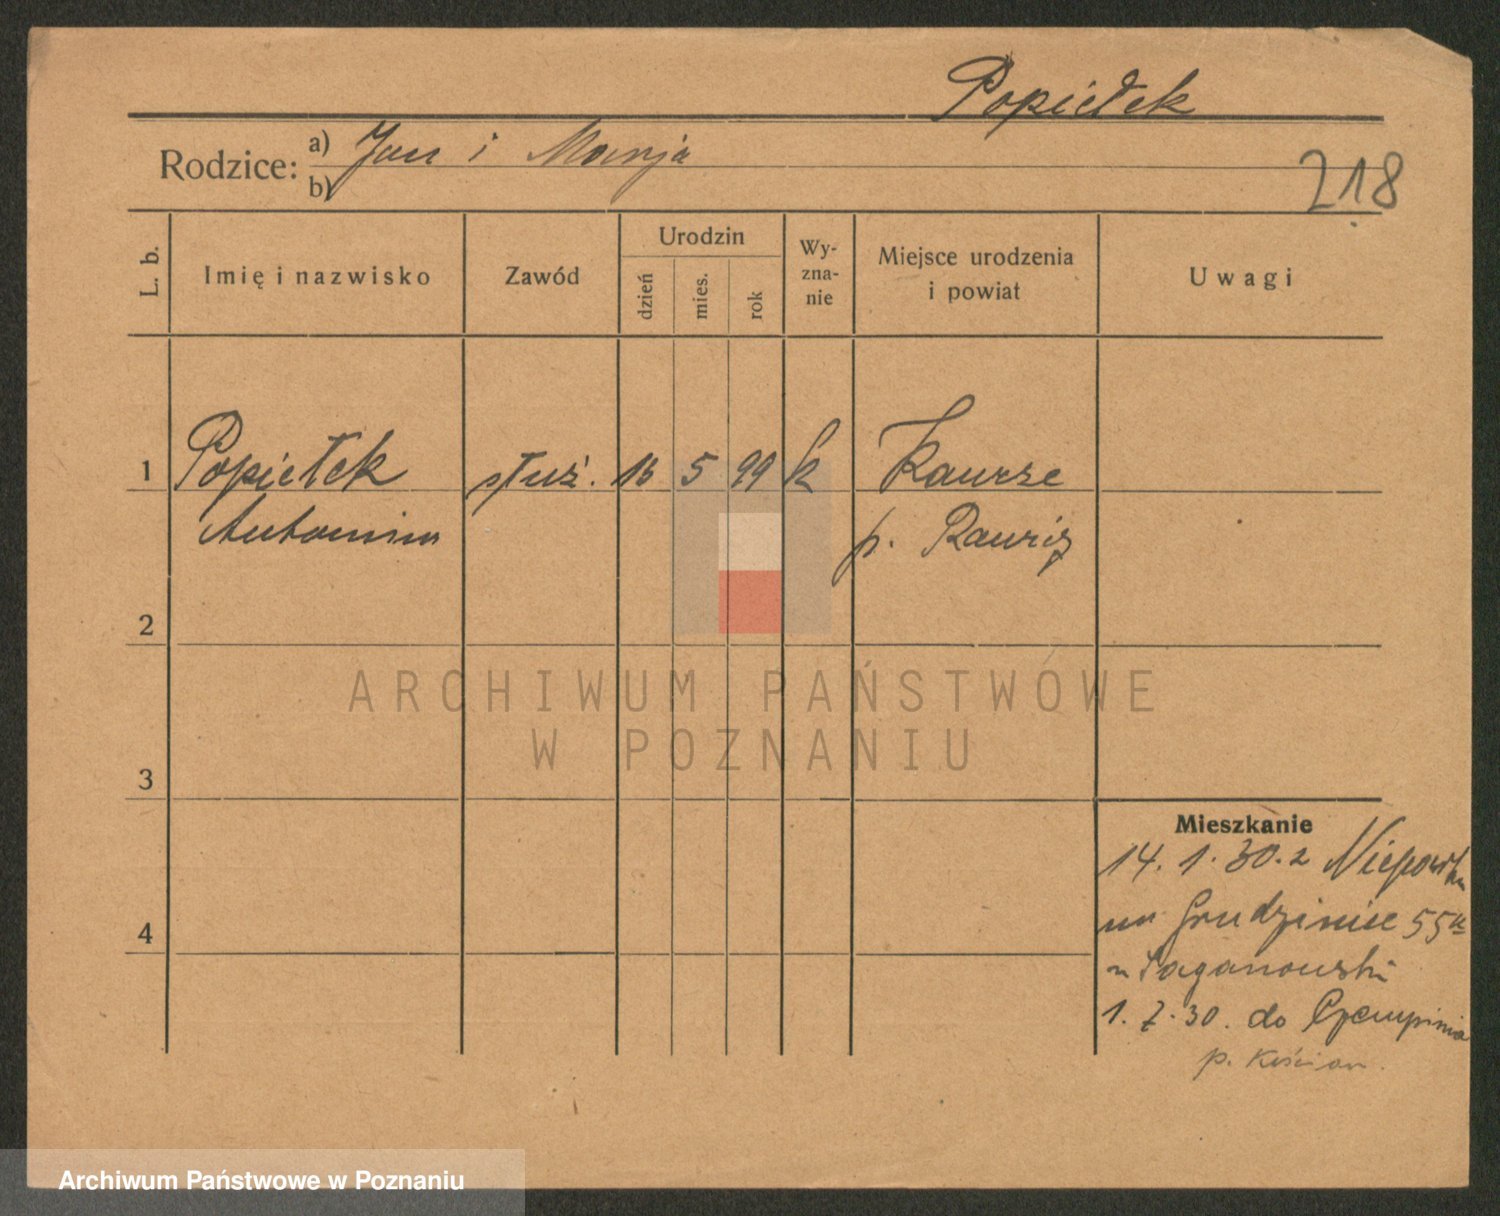 Popiełek
Rodzice: a) Jan i Marja
b)
218
L. b.
Imię i nazwisko
Zawód
Urodzin
dzień
mies.
rok
Wy-
zna-
nie
Miejsce urodzenia
i powiat
Uwagi
1 Popiełek służ. 16 5 99 k
Antonina p. Rawicz
2
3
4
Mieszkanie
14. 1. 30. z
Grudzieniec 55
1. 7. 30. do Czempinia
p. Kościan.
ARCHIWUM PAŃSTWOWE
W POZNANIU
Archiwum Państwowe w Poznaniu